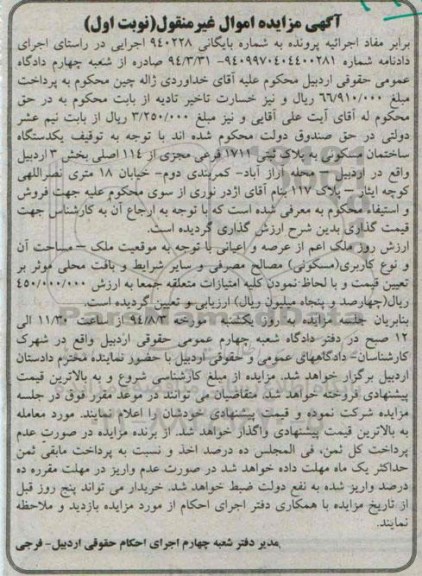 آگهی مزایده اموال غیرمنقول(نوبت اول)
برابر مفاد اجرائیه پرونده به شماره بایگانی ۹۴۰۲۲۸ اجرایی در راستای اجرای
دادنامه شماره ۹۴۰۹۹۷۰۴۰۴۴۰۰۲۸۱- ۹۴/۳/۳۱ صادره از شعبه چهارم دادگاه
عمومی حقوقی اردبیل محکوم علیه آقای خداوردی ژاله چین محکوم به پرداخت
مبلغ ۶۶/۹۱۰/۰۰۰ ریال و نیز خسارت تاخیر تادیه از بابت محکوم به در حق
محکوم له آقای آیت علی آقایی و نیز مبلغ ۳/۲۵۰/۰۰۰ ریال از بابت نیم عشر
دولتی در حق صندوق دولت محکوم شده اند با توجه به توقیف یکدستگاه
ساختمان مسکونی به پلاک ثبتی ۱۷۱۱ فرعی مجزی از ۱۱۴ اصلی بخش ۳ اردبیل
واقع در اردبیل – محله آراز آباد- کمربندی دوم- خیابان ۱۸ متری نصراللهی
کوچه ایثار – پلاک ۱۱۷ بنام آقای اژدر نوری از سوی محکوم علیه جهت فروش
و استیفاء محکوم به معرفی شده است که با توجه به ارجاع آن به کارشناس جهت
قیمت گذاری بدین شرح ارزش گذاری گردیده است.
ارزش روز ملک اعم از عرصه و اعیانی با توجه به موقعیت ملک – مساحت آن
و نوع کاربری(مسکونی) مصالح مصرفی و سایر شرایط و بافت محلی موثر بر
تعیین قیمت و با لحاظ نمودن کلیه امتیازات متعلقه جمعا به ارزش ۴۵۰/۰۰۰/۰۰۰
ریال(چهارصد و پنجاه میلیون ریال) ارزیابی و تعیین گردیده است.
بنابریان جلسه مزایده به روز یکشنبه مورخه ۹۴/۸/۳ از ساعت ۱۱/۳۰ الی
۱۲ صبح در دفتر دادگاه شعبه چهارم عمومی حقوقی اردبیل واقع در شهرک
کارشناسان- دادگاههای عمومی و حقوقی اردبیل با حضور نماینده محترم دادستان
اردبیل برگزار خواهد شد. مزایده از مبلغ کارشناسی شروع و به بالاترین قیمت
پیشنهادی فروخته خواهد شد. متقاضیان می توانند در موعد مقرر فوق در جلسه
مزایده شرکت نموده و قیمت پیشنهادی خودشان را اعلام نمایند. مورد معامله
به بالاترین قیمت پیشنهادی واگذار خواهد شد. از برنده مزایده در صورت عدم
پرداخت کل ثمن، فی المجلس ده درصد اخذ و نسبت به پرداخت مابقی ثمن
حداکثر یک ماه مهلت داده خواهد شد. در صورت عدم واریز در مهلت مقرره ده
درصد واریز شده به نفع دولت ضبط خواهد شد. خریدار می تواند پنج روز قبل
از تاریخ مزایده با همکاری دفتر اجرای احکام از مورد مزایده بازدید و ملاحظه
نمایند.
مدیر دفتر شعبه چهارم اجرای احکام حقوقی اردبیل- فرجی